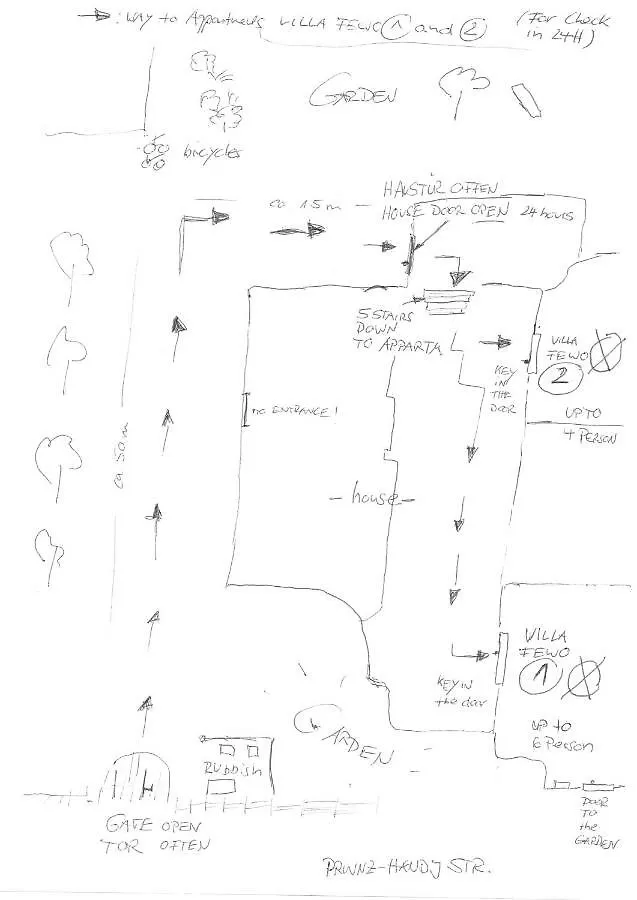 : WAY to Appartments VILLA FEWO 1 and 2
(For Check
in 24H)
GARDEN
bicycles
ca 15 m
HAUSTÜR OFFEN
HOUSE DOOR OPEN 24 hours
5 STAIRS
DOWN
TO APPARTM.
VILLA
FEWO
2
KEY
IN
THE
DOOR
UP TO
4 PERSON
no ENTRANCE!
ca 50 m
- house -
VILLA
FEWO
1
KEY IN
the door
UP to
6 Person
GARDEN
RUBBISH
GATE OPEN
TOR OFFEN
DOOR
TO
the
GARDEN
STR.